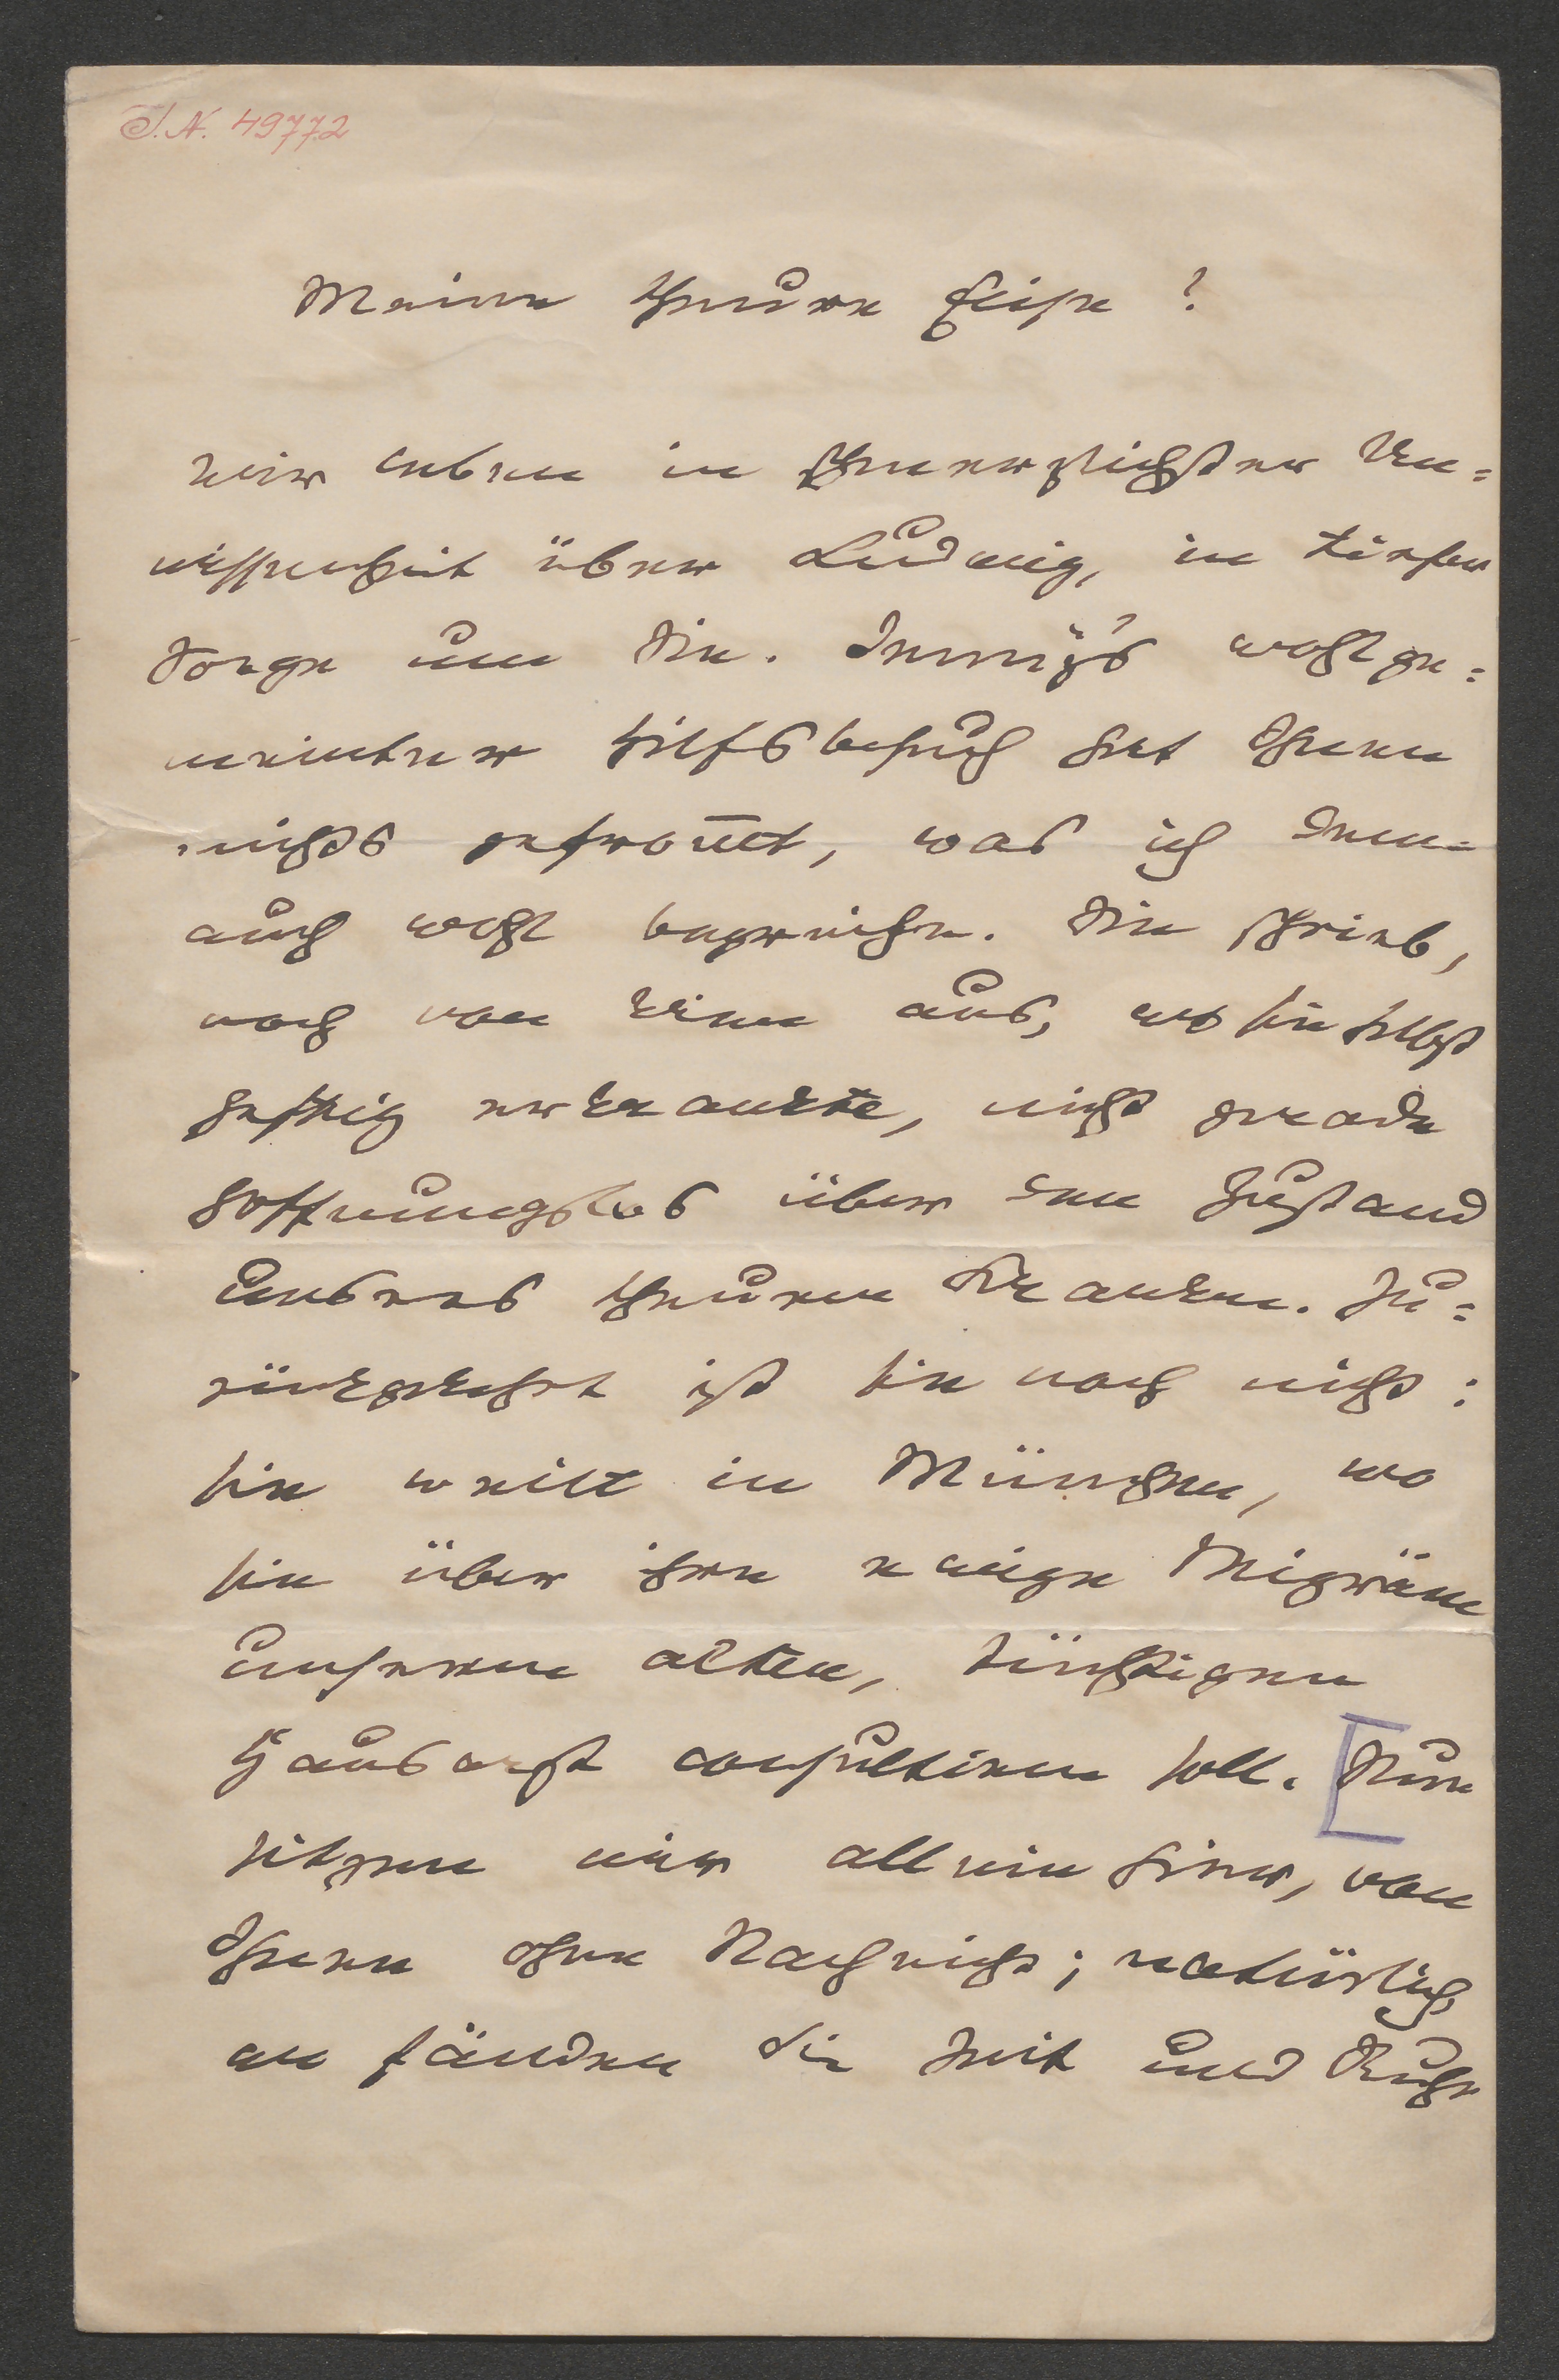 I.N. 49772
Meine theure Elise!
wir leben in schmerzlichster Un=
wissenheit über Ludwig, in tiefer
Sorge um Sie. Jenny's wohlge=
meinter Hilfsbesuch hat Ihnen
nichts gefrom̅t, was ich denn
auch wohl begreife. Sie schrieb,
noch von Wien aus, wo sie selbst
heftig erkrankte, nicht grade
hoffnungslos über den Zustand
unsres theuren Kranken. Zu=
rückgekehrt ist sie noch nicht:
sie weilt in München, wo
sie über ihre ewige Migräne
unseren alten, tüchtigen
Hausarzt consultiren soll. [Nun
sitzen wir allein hier, von
Ihnen ohne Nachricht; natürlich,
wo fänden Sie Zeit und Ruhe